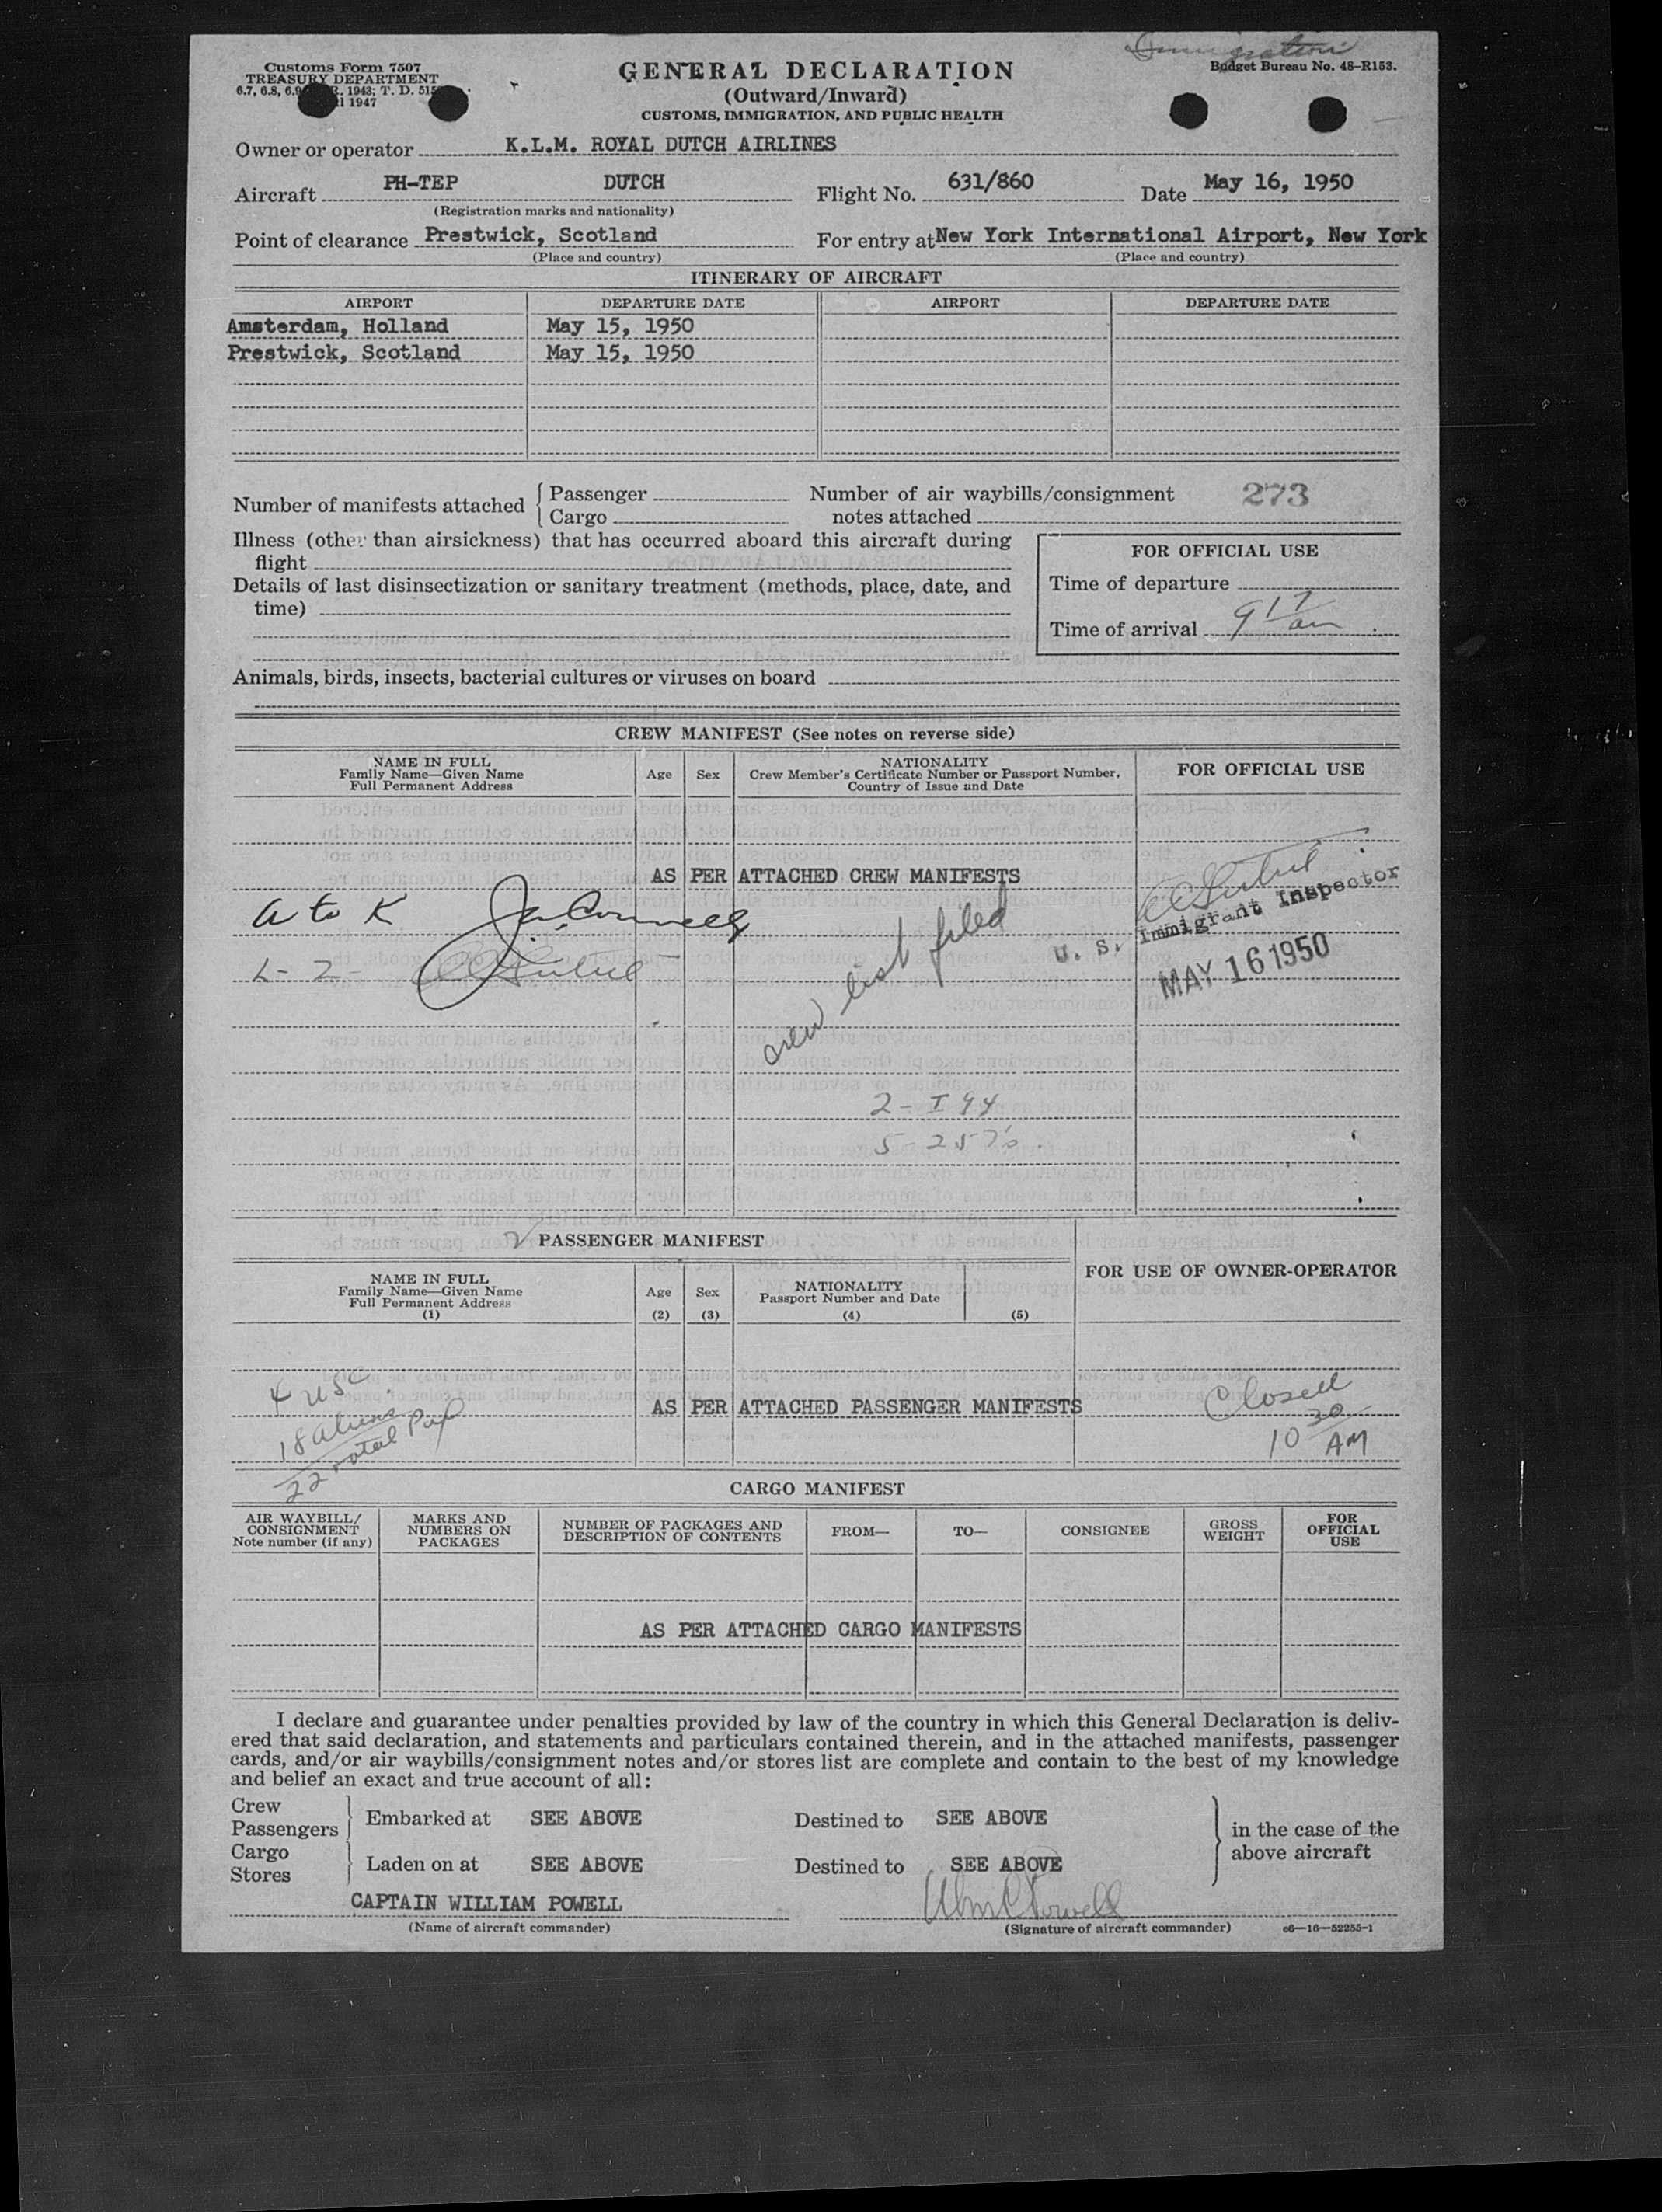 Immigration
Customs Form 7507
TREASURY DEPARTMENT
6.7, 6.8, 1943; T. D.
1947
GENERAL DECLARATION
(Outward/Inward)
CUSTOMS, IMMIGRATION, AND PUBLIC HEALTH
Budget Bureau No. 48-R153.
Owner or operator K.L.M. ROYAL DUTCH AIRLINES
Aircraft PH-TEP DUTCH Flight No. 631/860 Date May 16, 1950
(Registration marks and nationality)
Point of clearance Prestwick, Scotland For entry at New York International Airport, New York
(Place and country) (Place and country)
ITINERARY OF AIRCRAFT
AIRPORT DEPARTURE DATE AIRPORT DEPARTURE DATE
Amsterdam, Holland May 15, 1950
Prestwick, Scotland May 15, 1950
Number of manifests attached { Passenger
Cargo
Number of air waybills/consignment
notes attached
273
Illness (other than airsickness) that has occurred aboard this aircraft during
flight
Details of last disinsectization or sanitary treatment (methods, place, date, and
time)
FOR OFFICIAL USE
Time of departure
Time of arrival 9 17 am
Animals, birds, insects, bacterial cultures or viruses on board
CREW MANIFEST (See notes on reverse side)
NAME IN FULL
Family Name—Given Name
Full Permanent Address
Age
Sex
NATIONALITY
Crew Member's Certificate Number or Passport Number,
Country of Issue and Date
FOR OFFICIAL USE
AS PER ATTACHED CREW MANIFESTS
A to K
L-Z-
crew list filed
U. S. Immigrant Inspector
MAY 16 1950
2 - I 94
5 - 257's
PASSENGER MANIFEST
NAME IN FULL
Family Name—Given Name
Full Permanent Address
(1)
Age
(2)
Sex
(3)
NATIONALITY
Passport Number and Date
(4)
(5)
FOR USE OF OWNER-OPERATOR
4 USC
18 aliens
22 total
AS PER ATTACHED PASSENGER MANIFESTS
Closed
10 30 AM
CARGO MANIFEST
AIR WAYBILL/
CONSIGNMENT
Note number (if any)
MARKS AND
NUMBERS ON
PACKAGES
NUMBER OF PACKAGES AND
DESCRIPTION OF CONTENTS
FROM—
TO—
CONSIGNEE
GROSS
WEIGHT
FOR
OFFICIAL
USE
AS PER ATTACHED CARGO MANIFESTS
I declare and guarantee under penalties provided by law of the country in which this General Declaration is deliv-
ered that said declaration, and statements and particulars contained therein, and in the attached manifests, passenger
cards, and/or air waybills/consignment notes and/or stores list are complete and contain to the best of my knowledge
and belief an exact and true account of all:
Crew
Passengers
Embarked at SEE ABOVE Destined to SEE ABOVE
Cargo
Stores
Laden on at SEE ABOVE Destined to SEE ABOVE
in the case of the
above aircraft
CAPTAIN WILLIAM POWELL
(Name of aircraft commander)
Wm C Powell
(Signature of aircraft commander)
c6—16—52255-1